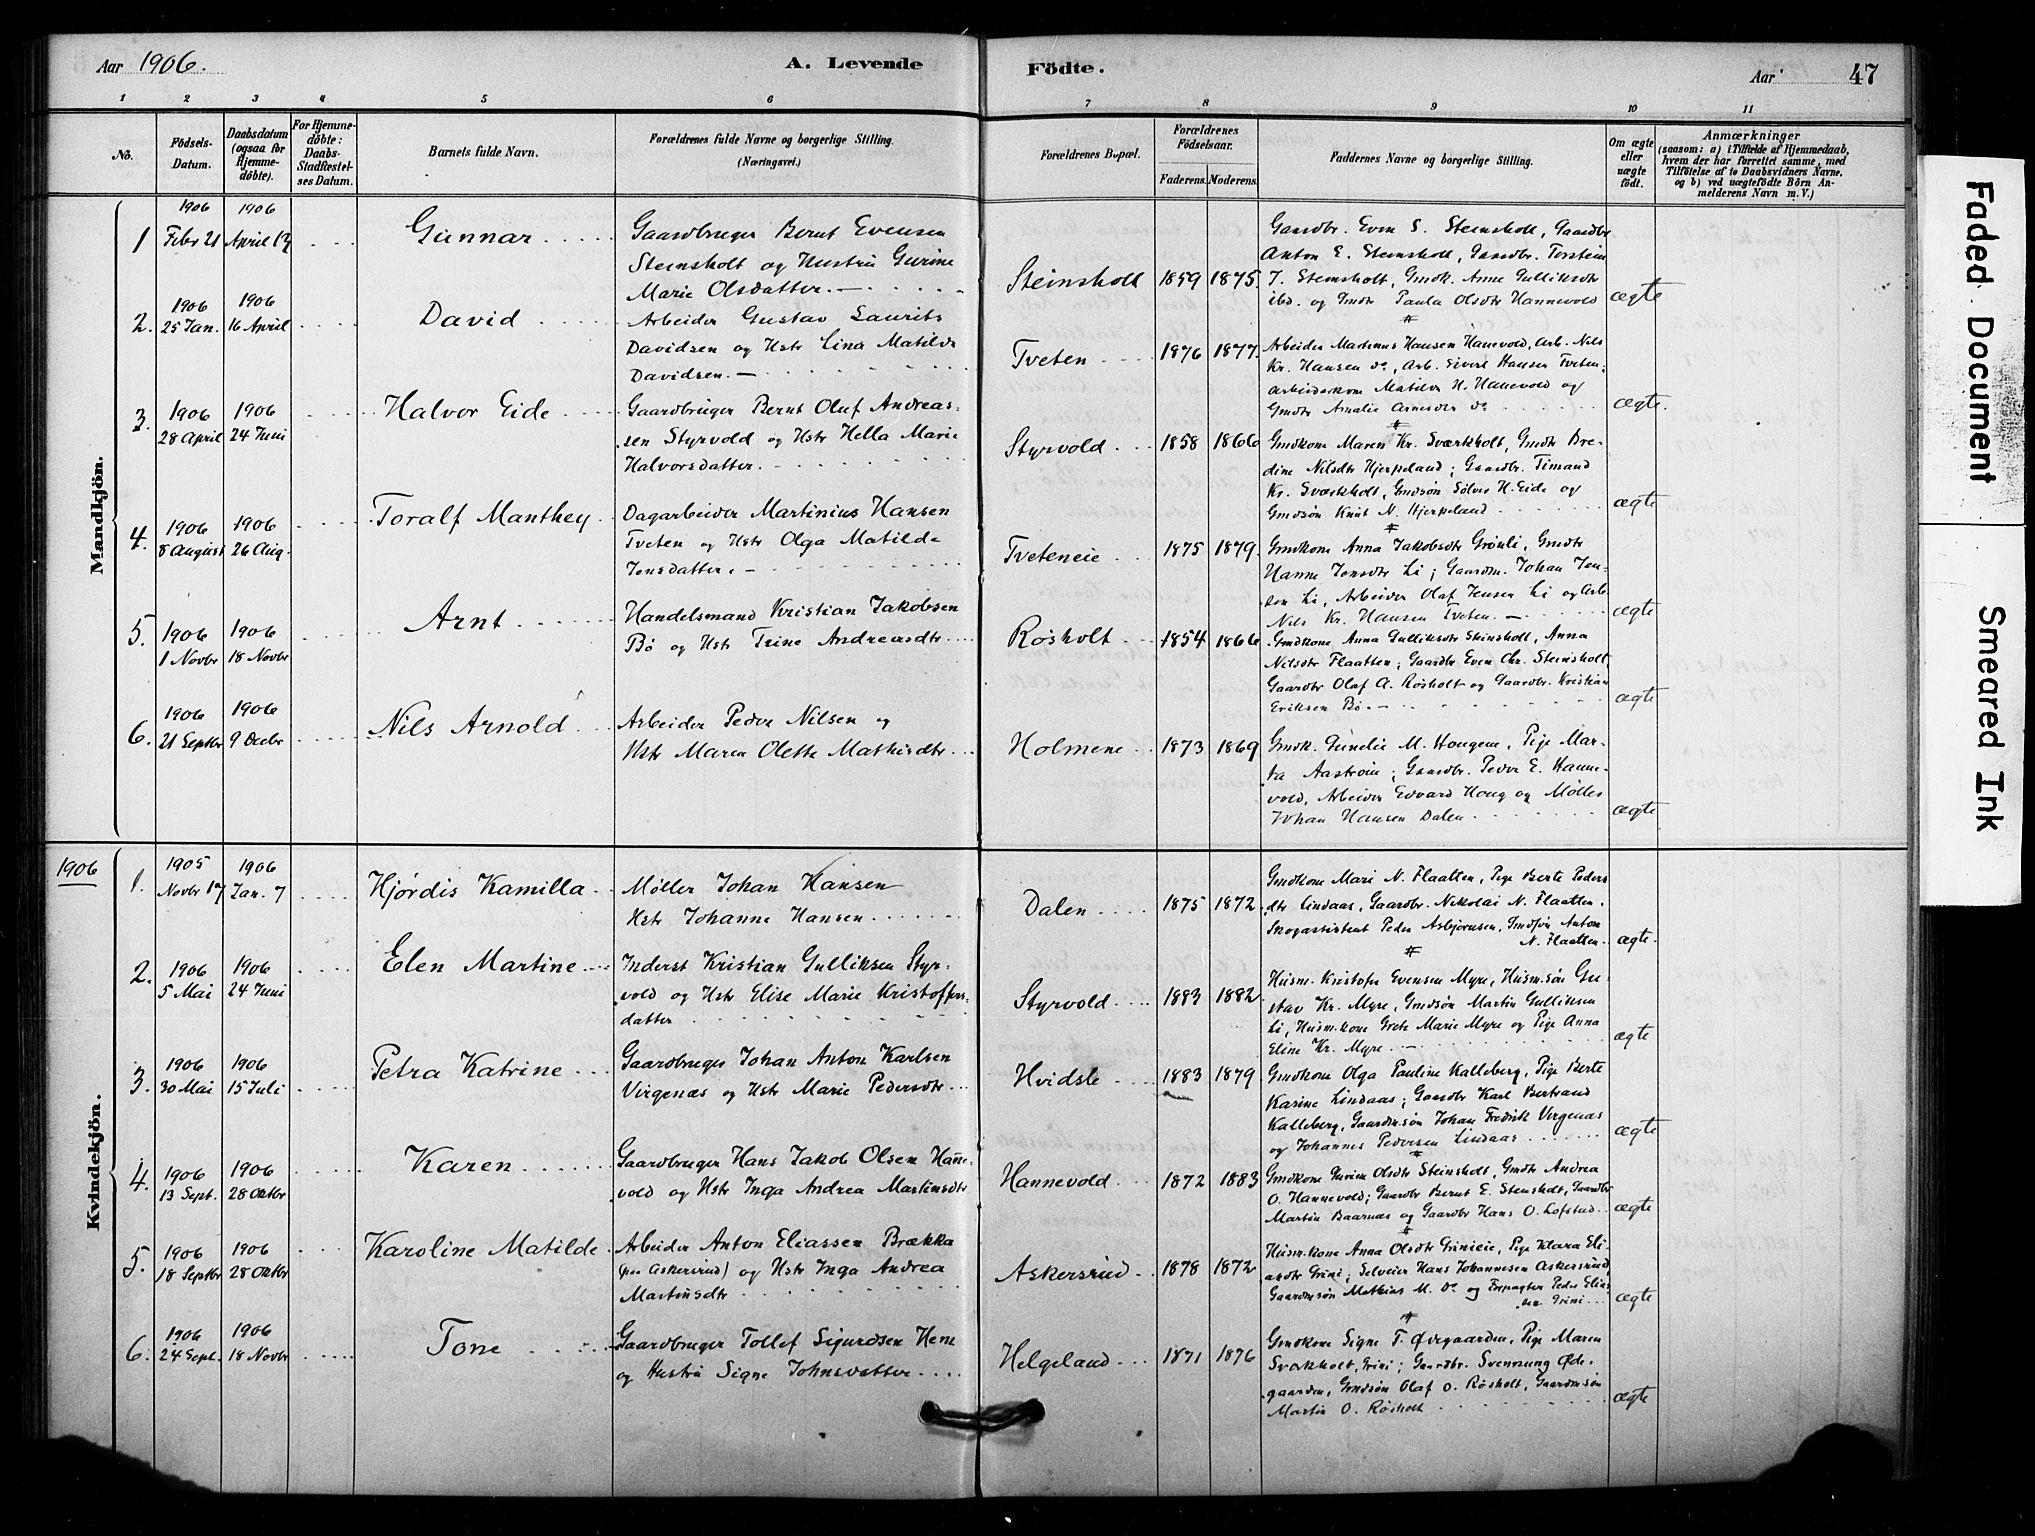 Aar 1906.
A. Levende
Födte.
Aar
47
1 2 3 4 5 6 7 8 9 10 11
No.
Födsels-
Datum.
Daabsdatum
(ogsaa for
Hjemme-
döbte).
For Hjemme-
döbte:
Daabs-
Stadfæstel-
ses Datum.
Barnets fulde Navn.
Forældrenes fulde Navne og borgerlige Stilling.
(Næringsvei.)
Forældrenes Bopæl.
Forældrenes
Födselsaar.
Faderens. Moderens.
Faddernes Navne og borgerlige Stilling.
Om ægte
eller
uægte
födt.
Anmærkninger
(saasom: a) i Tilfælde af Hjemmedaab,
hvem der har forrettet samme, med
Tilföielse af to Daabsvidners Navne.
og b) ved uægtefödte Börn An-
melderens Navn m. V.)
Mandkjön.
1
1906
Febr 21
1906
April 17
Gunnar
Gaardbruger Bernt Evensen
Steinsholt og Hustru Gurine
Marie Olsdatter.
Steinsholt
1859 1875
Gaardbr. Even S. Steinsholt, Gaardbr
Anton E. Steinsholt, Gaardbr. Torstein
T. Steinsholt, Gmdk. Anne Gulliksdtr
ibd. og Gmdtr Paula Olsdtr Hannevold
ægte
2.
1906
25 Jan.
1906
16 April
David
Arbeider Gustav Laurits
Davidsen og Hstr Lina Matilde
Davidsen.
Tveten
1876 1877
Arbeider Martinus Hansen Hanevold, Arb. Nils
Kr. Hansen do, Arb. Eivert Hansen Tveten,
Arbeiderkone Matilde H. Hanevold og
Gmdtr Amalie Arnesdtr do
ægte.
3.
1906
28 April
1906
24 Juni
Halvor Eide
Gaardbruger Bernt Oluf Andreas-
sen Styrvold og Hstr Hella Marie
Halvorsdatter.
Styrvold
1858 1866
Gmdkone Maren Kr. Sværkholt, Gmdtr Bre-
dine Nilsdtr Hjerpeland; Gaardbr. Timand
Kr. Sværkholt, Gmdsøn Sölver H. Eide og
Gmdsøn Knut N. Hjerpeland
ægte
4.
1906
8 August
1906
26 Aug.
Toralf Manthey
Dagarbeider Martinius Hansen
Tveten og Hstr Olga Matilde
Jensdatter.
Tveteneie
1875 1879
Gmdkone Anna Jakobsdtr Grönli, Gmdtr
Hanne Jensdtr Li; Gaardm. Johan Jen-
sen Li, Arbeider Olaf Jensen Li og Arb.
Nils Kr. Hansen Tveten.
ægte
5.
1906
1 Novbr
1906
18 Novbr
Arnt
Handelsmand Kristian Jakobsen
Bö og Hstr Trine Andreasdtr
Røsholt
1854 1866
Gmdkone Anna Gulliksdtr Steinsholt, Anna
Nilsdtr Flaatten; Gaardbr Even Chr. Steinsholt,
Gaardbr Olaf A. Røsholt og Gaardbr. Kristian
Eriksen Bö.
ægte
6.
1906
21 Septbr
1906
9 Decbr
Nils Arnold
Arbeider Peder Nilsen og
Hstr Maren Olette Mathisdtr
Holmene
1873 1869
Gmdk. Gunelie M. Hougene, Pige Mar-
ta Aaström; Gaardbr. Peder E. Hanne-
vold, Arbeider Edvard Houg og Møller
Johan Hansen Dalen
ægte
1906
Kvindekjön.
1.
1905
Novbr 17
1906
Jan. 7
Hjørdis Kamilla
Møller Johan Hansen
Hstr Johanne Hansen
Dalen
1875 1872
Gmdkone Mari N. Flaatten, Pige Berte Peders
dtr Lindaas, Gaardbr. Nikolai N. Flaatten.
Skogassistent Peder Asbjørnsen, Gmdsøn Anton
N. Flaatten.
ægte.
2.
1906
5 Mai
1906
24 Juni
Elen Martine
Inderst Kristian Gulliksen Styr-
vold og Hstr Elise Marie Kristoffers-
datter
Styrvold
1883 1882
Husm. Kristofer Evensen Myre, Husm.søn Gu-
stav Kr. Myre, Gmdsøn Martin Gulliksen
Li, Husm.kone Grete Marie Myre og Pige Anna
Eline Kr. Myre.
ægte
3.
1906
30 Mai
1906
15 Juli
Petra Katrine
Gaardbruger Johan Anton Karlsen
Virgenæs og Hstr Marie Pedersdtr
Hvidste
1883 1879
Gmdkone Olga Pauline Kalleberg, Pige Berte
Karine Lindaas; Gaardbr Karl Bertrand
Kalleberg, Gaardm.søn Johan Fredrik Vergenæs
og Johannes Pedersen Lindaas
ægte
4.
1906
13 Sept.
1906
28 Oktbr
Karen
Gaardbruger Hans Jakob Olsen Hanne-
vold og Hstr Inga Andrea Martinsdtr
Hannevold
1872 1883
Gmdkone Gurine Olsdtr Steinsholt, Gmdtr Andrea
O. Hannevold; Gaardbr Bernt E. Steinsholt, Gaardbr
Martin Baarnæs og Gaardbr Hans O. Lofstad
ægte
5.
1906
18 Septbr
1906
28 Oktbr
Karoline Matilde
Arbeider Anton Eliassen Brækka
(paa Askersrud) og Hstr Inga Andrea
Martinsdtr
Askersrud
1878 1872
Husm.kone Anna Olsdtr Grinieie, Pige Klara Eli-
asdtr Grini; Selveier Hans Johannesen Askersrud
Gaardmsøn Mathias M. do og Forpagter Peder Elias-
sen Grini
ægte
6.
1906
24 Sept.
1906
18 Novbr
Tone
Gaardbruger Tollef Sigurdsen Hem
og Hustru Signe Johnsdatter
Helgeland
1871 1876
Gmdkone Signe T. Øvrgaarden, Pige Maren
Sværkholt, Grini; Gaardbr. Svennung Øde-
gaarden, Gmdsøn Olaf O. Røsholt, Gaardmsøn
Martin O. Røsholt
ægte
Faded Document
Smeared Ink